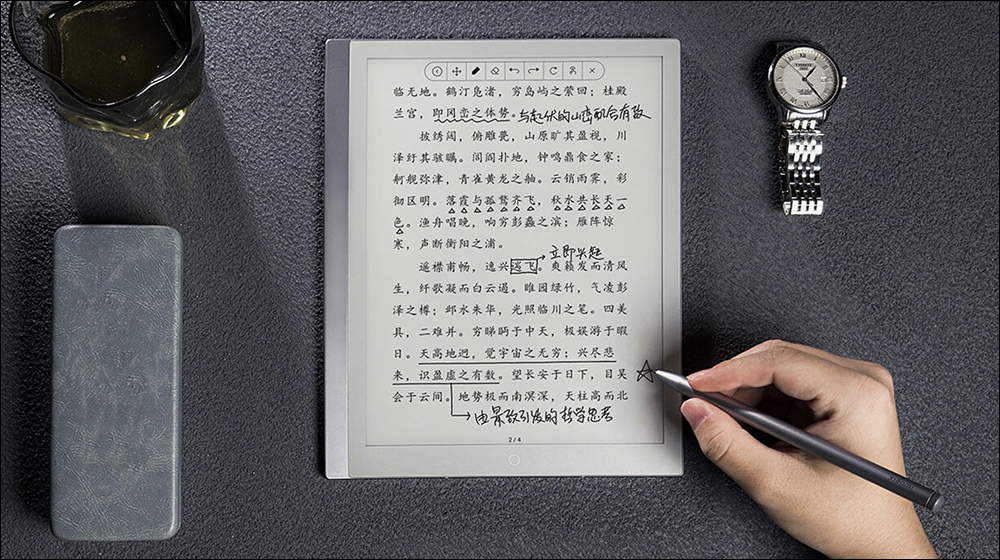 临无地。鹤汀凫渚，穷岛屿之萦回；桂殿
兰宫，即冈峦之体势。
与起伏的山峦配合有致
披绣闼，俯雕甍，山原旷其盈视，川
泽纡其骇瞩。闾阎扑地，钟鸣鼎食之家；
舸舰弥津，青雀黄龙之舳。云销雨霁，彩
彻区明。落霞与孤鹜齐飞，秋水共长天一
色。渔舟唱晚，响穷彭蠡之滨；雁阵惊
寒，声断衡阳之浦。
立即兴起
遥襟甫畅，逸兴遄飞。爽籁发而清风
生，纤歌凝而白云遏。睢园绿竹，气凌彭
泽之樽；邺水朱华，光照临川之笔。四美
具，二难并。穷睇眄于中天，极娱游于暇
日。天高地迥，觉宇宙之无穷；兴尽悲
来，识盈虚之有数。望长安于日下，目吴
会于云间。地势极而南溟深，天柱高而北
由景致引发的哲学思考
2/4
TISSOT